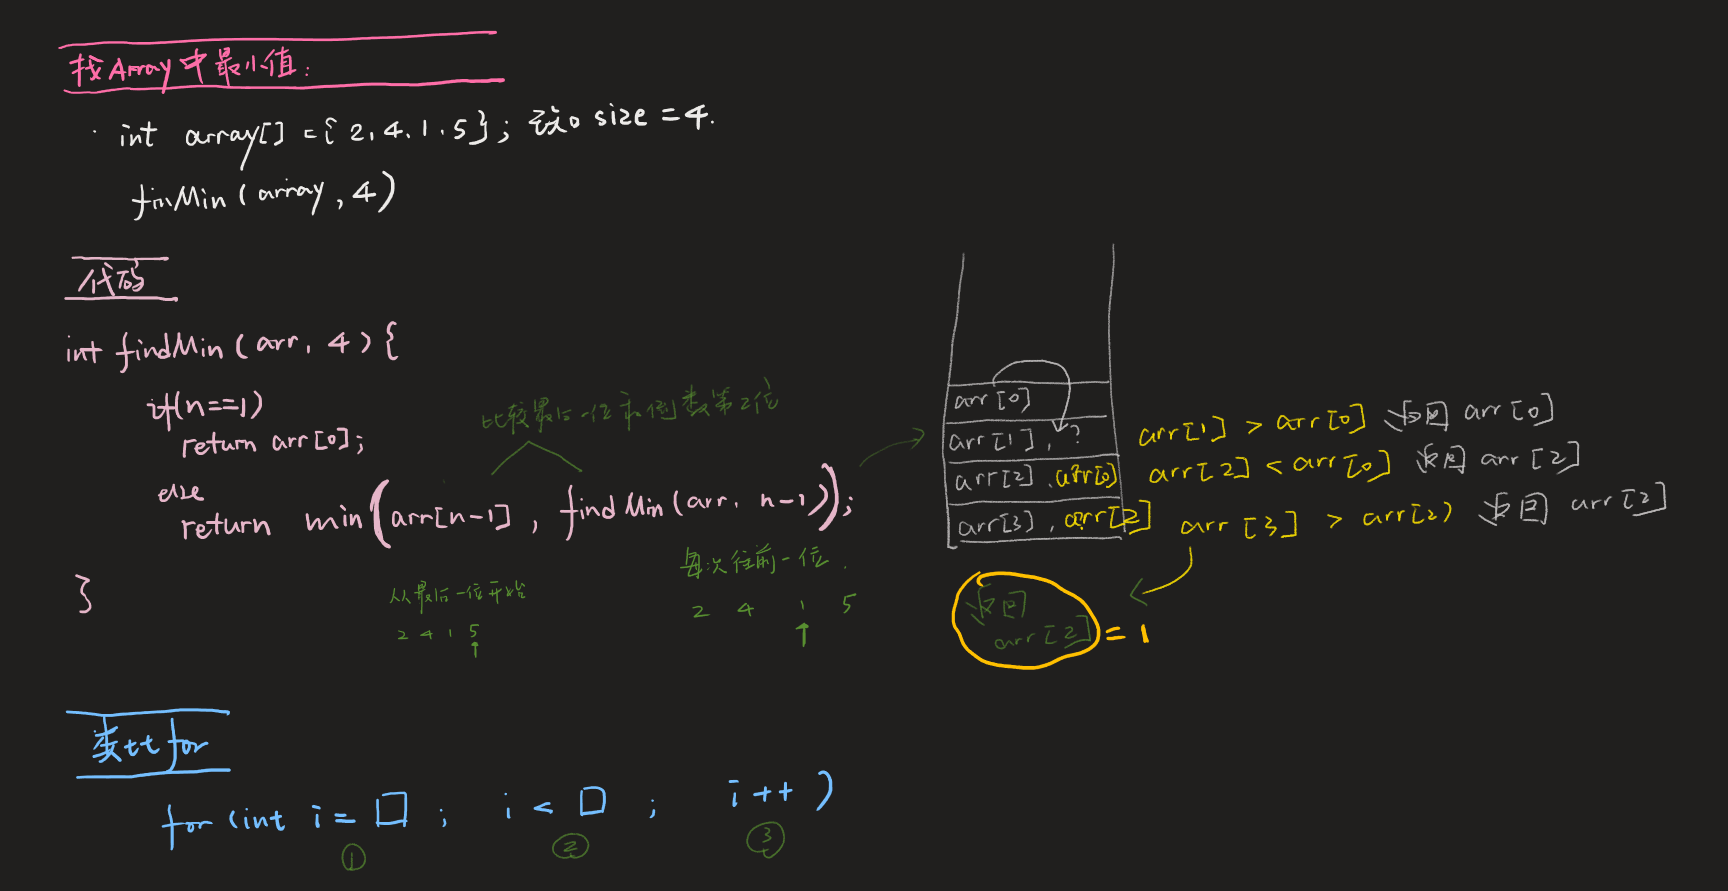 找Array中最小值:
int array[] = { 2, 4, 1, 5 }; 设 size = 4.
finMin ( array , 4 )
代码
int findMin ( arr, 4 ) {
if(n==1)
return arr[0];
else
return min ( arr[n-1] , findMin (arr, n-1) );
}
比较最后一位和倒数第2位
每次往前一位.
2 4 1 5
↑
从最后一位开始
2 4 1 5
↑
arr[0]
arr[1], ? arr[1] > arr[0] 返回 arr[0]
arr[2], arr[0] arr[2] < arr[0] 返回 arr[2]
arr[3], arr[2] arr[3] > arr[2] 返回 arr[2]
返回
arr[2] = 1
类比 for
for (int i = □ ; i < □ ; i++ )
① ② ③